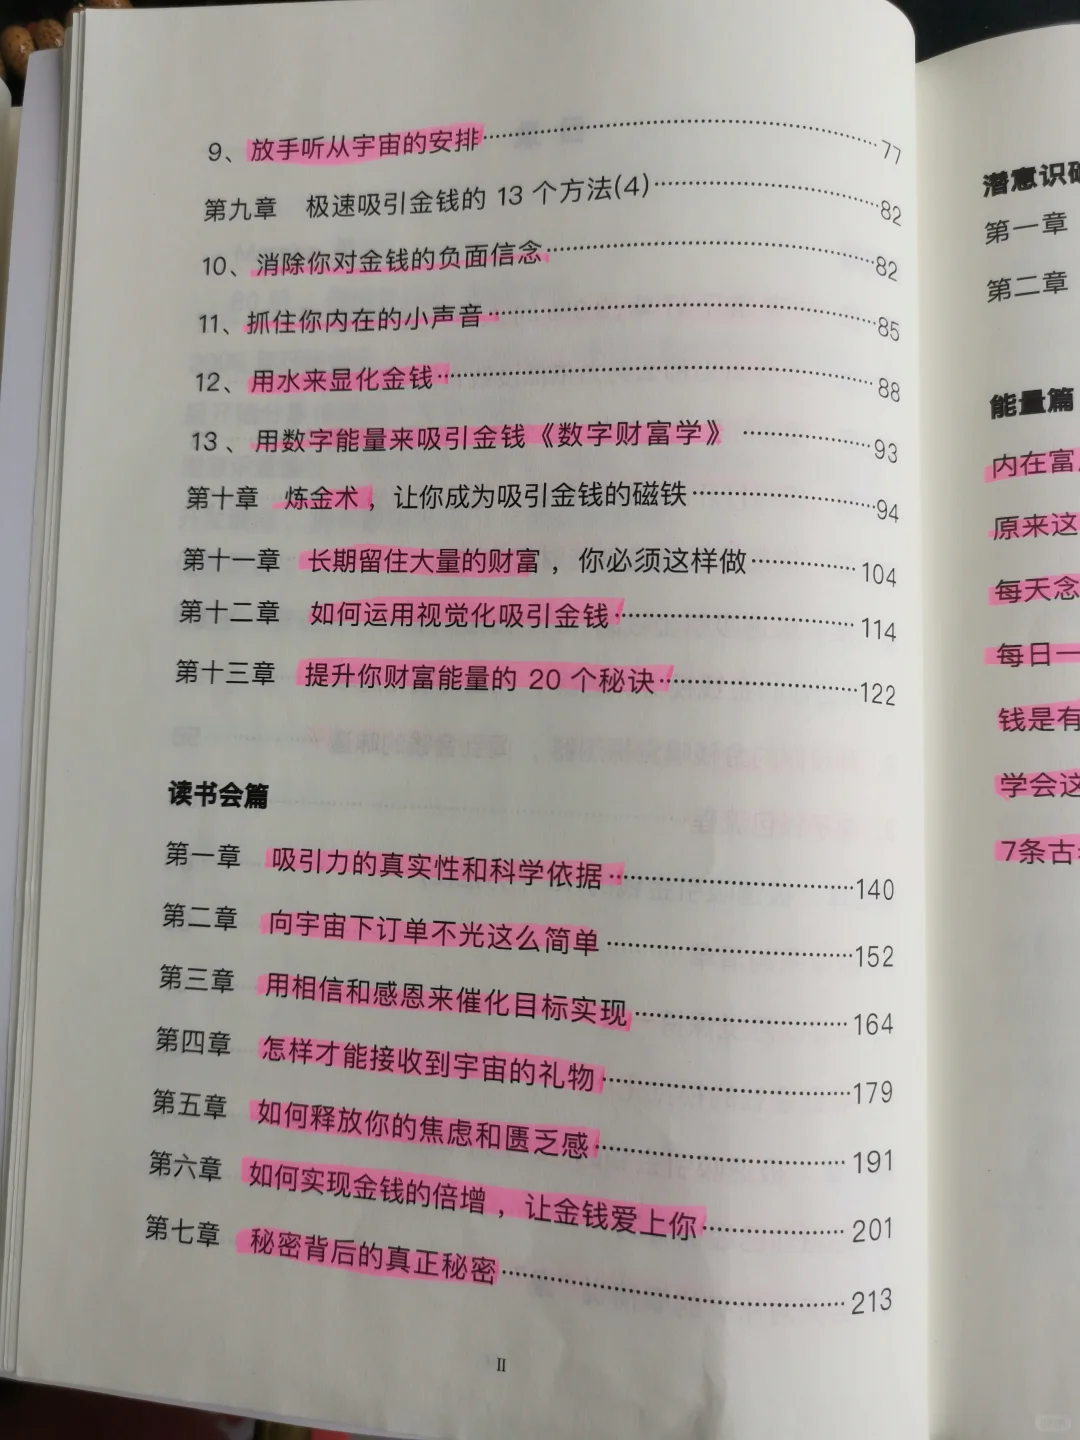 9、放手听从宇宙的安排……77
第九章 极速吸引金钱的 13 个方法(4)……82
10、消除你对金钱的负面信念……82
11、抓住你内在的小声音……85
12、用水来显化金钱……88
13、用数字能量来吸引金钱《数字财富学》……93
第十章 炼金术，让你成为吸引金钱的磁铁……94
第十一章 长期留住大量的财富，你必须这样做……104
第十二章 如何运用视觉化吸引金钱……114
第十三章 提升你财富能量的 20 个秘诀……122
读书会篇
第一章 吸引力的真实性和科学依据……140
第二章 向宇宙下订单不光这么简单……152
第三章 用相信和感恩来催化目标实现……164
第四章 怎样才能接收到宇宙的礼物……179
第五章 如何释放你的焦虑和匮乏感……191
第六章 如何实现金钱的倍增，让金钱爱上你……201
第七章 秘密背后的真正秘密……213
II
潜意识
第一章
第二章
能量篇
内在富
原来这
每天念
每日一
钱是有
学会这
7条古